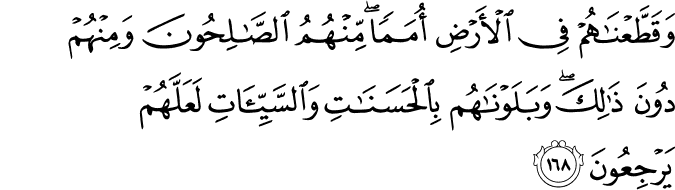 وَقَطَّعْنَٰهُمْ فِى ٱلْأَرْضِ أُمَمًا ۖ مِّنْهُمُ ٱلصَّٰلِحُونَ وَمِنْهُمْ
دُونَ ذَٰلِكَ ۖ وَبَلَوْنَٰهُم بِٱلْحَسَنَٰتِ وَٱلسَّيِّـَٔاتِ لَعَلَّهُمْ
يَرْجِعُونَ ١٦٨